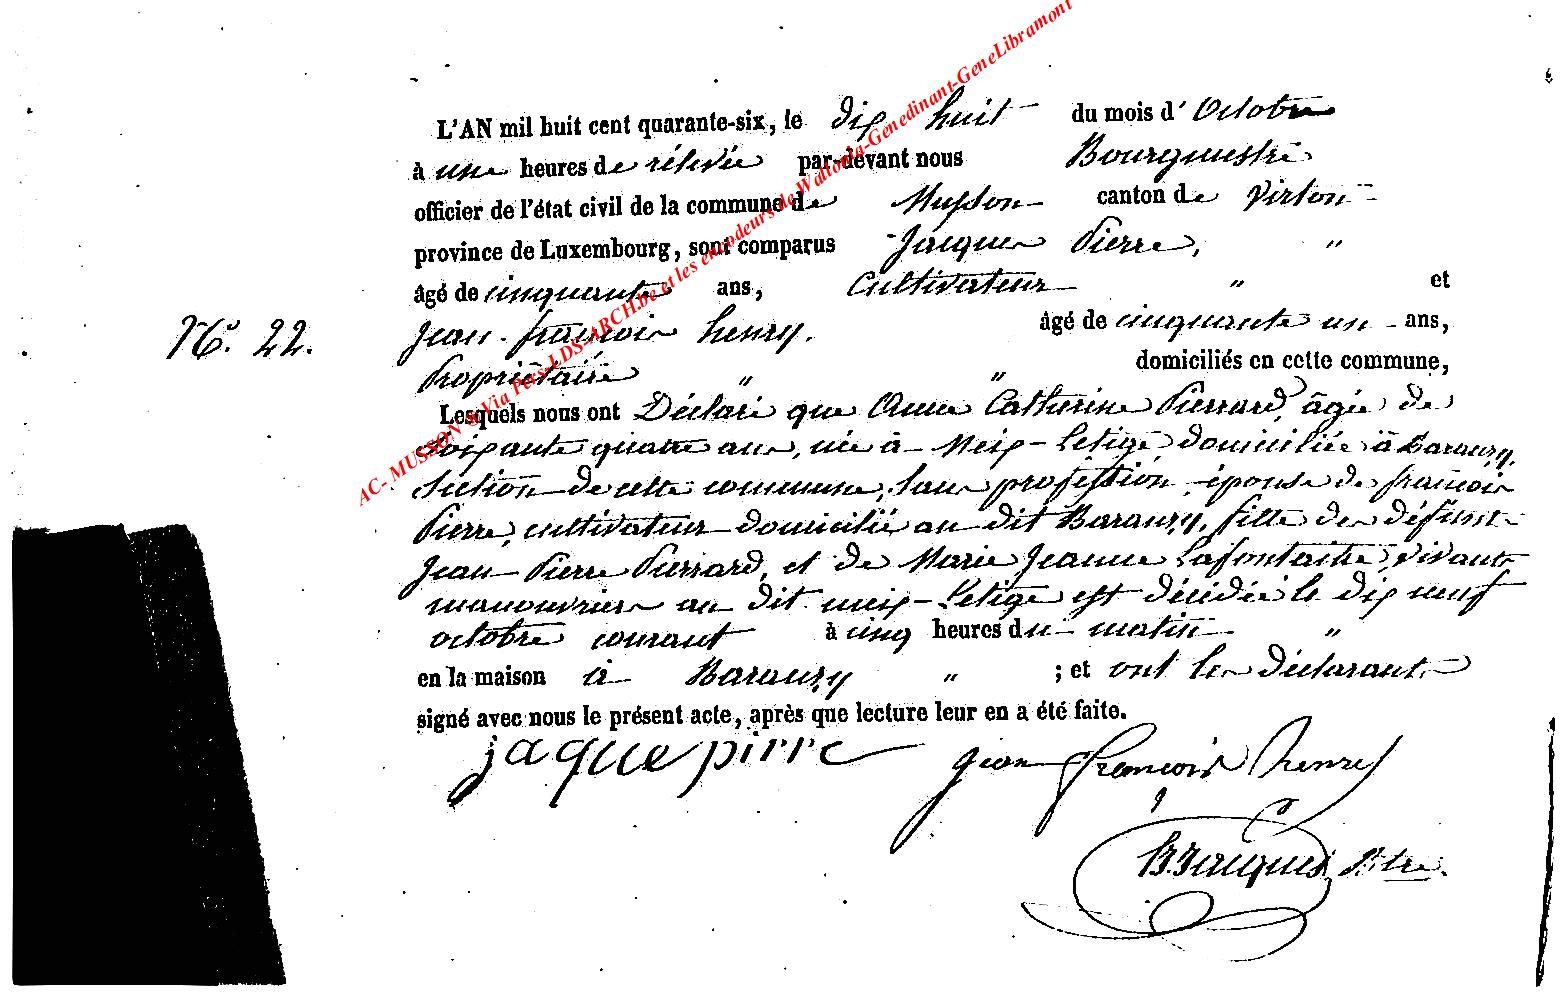 L'AN mil huit cent quarante-six, le dix huit du mois d' Octobre
à une heures de rélevée par-devant nous Bourgmestre
officier de l'état civil de la commune de Musson canton de Virton
province de Luxembourg, sont comparus Jacques Pierre, "
âgé de cinquante ans, Cultivateur " et
N°. 22. Jean-françois henry. âgé de cinquante un ans,
Propriétaire " " domiciliés en cette commune,
Lesquels nous ont Déclaré que Anne Catherine Pierrard, âgée de
soixante quatre ans, née à Meix-Letige domiciliée à Baranzy,
section de cette commune, sans profession, épouse de françois
Pierre, cultivateur domicilié au dit Baranzy, fille de défunt
Jean Pierre Pierrard, et de Marie Jeanne Lafontaine, vivant
manouvrier au dit meix-Letige est décédée le dix neuf
octobre courant à cinq heures du matin "
en la maison à Baranzy " ; et ont les déclarants
signé avec nous le présent acte, après que lecture leur en a été faite.
jaque pirre jean françois henry
Jacques Btre.
AC- MUSSON & Via Pers-LDS-ARCH.be et les encodeurs de Wallonia-Genedinant-GeneLibramont